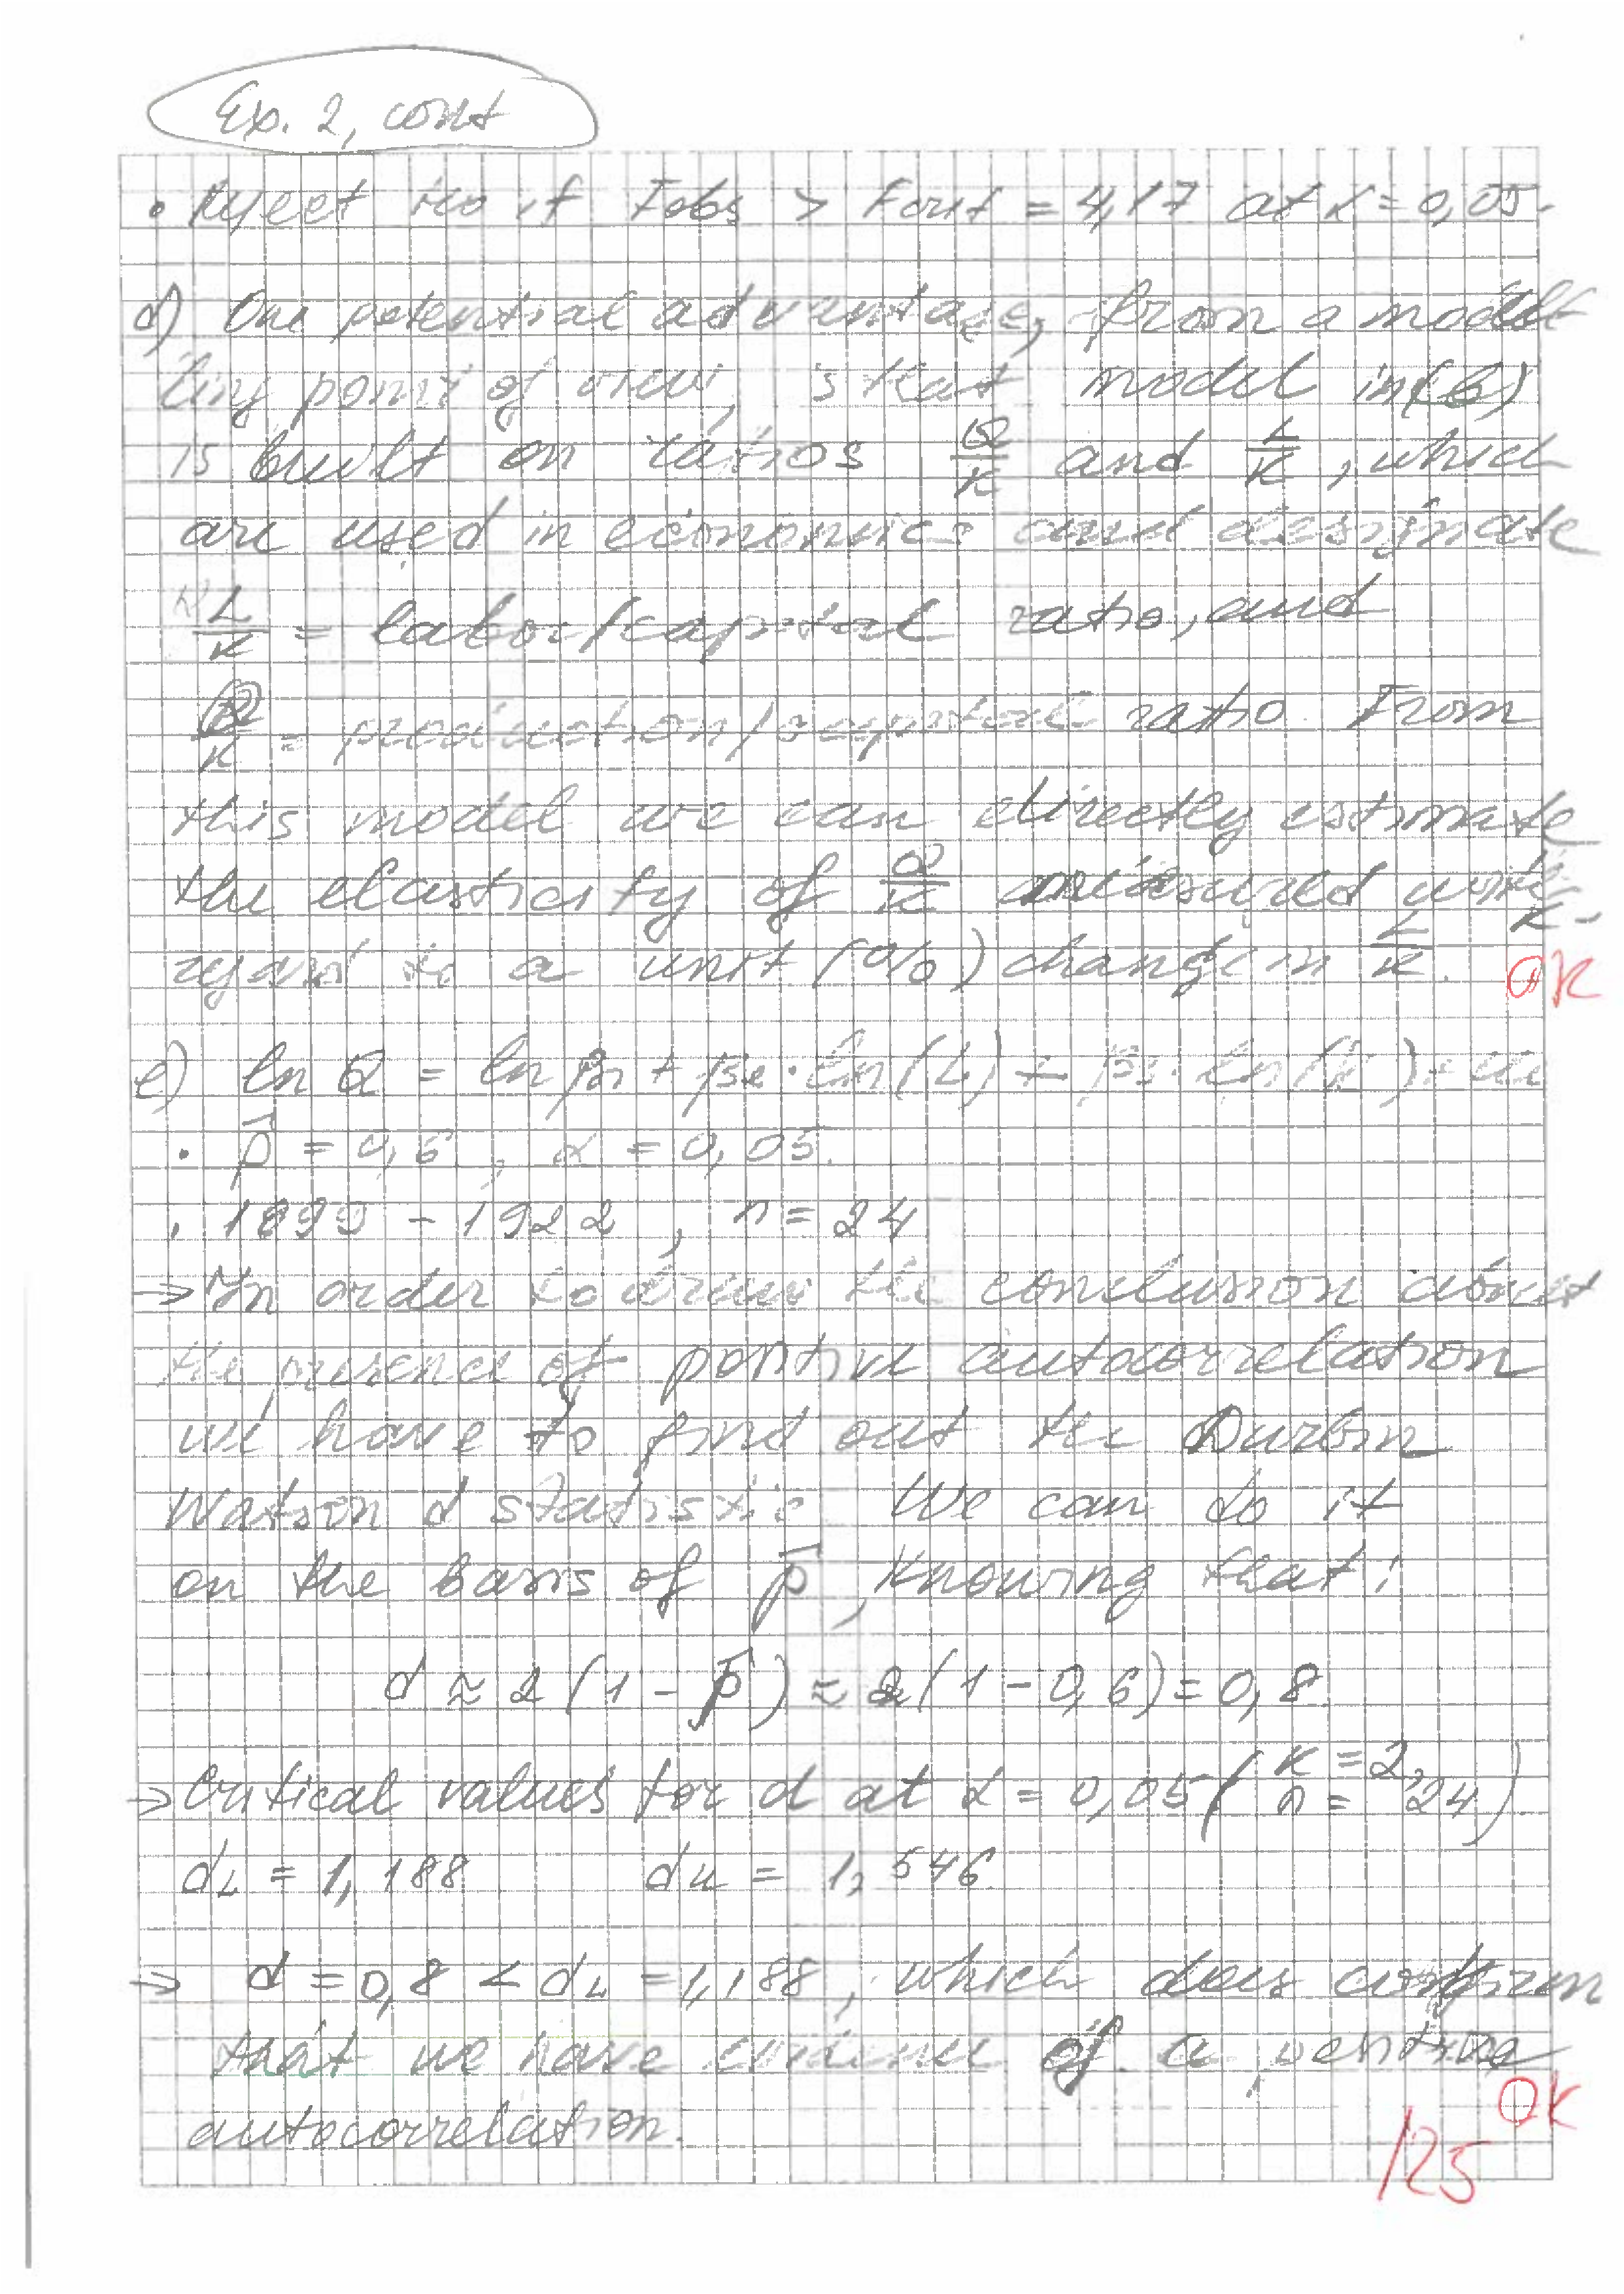 Ex. 2, cont
• Reject Ho if Fobs > Fcrit = 4,17 at α = 0,05.
d) One potential advantage, from a model
ling point of view, is that model in (b)
is built on ratios Q/K and L/K, which
are used in economics and designate
L/K = labor/capital ratio, and
Q/K = production/capital ratio. From
this model we can directly estimate
the elasticity of Q/K measured with
regard to a unit (%) change in L/K.
OK
e) ln Q = ln β1 + β2 · ln(L) + β3 · ln(K) + u
• ρ̂ = 0,6 , α = 0,05.
• 1899 - 1922 , n = 24
→ In order to draw the conclusion about
the presence of positive autocorrelation
we have to find out the Durbin
Watson d statistic. We can do it
on the basis of ρ̂, knowing that:
d ≈ 2(1 - ρ̂) ≈ 2(1 - 0,6) = 0,8
→ Critical values for d at α = 0,05 (K = 2, n = 24)
dL = 1,188 du = 1,546.
→ d = 0,8 < dL = 1,188, which does confirm
that we have evidence of a positive
autocorrelation.
OK
/25